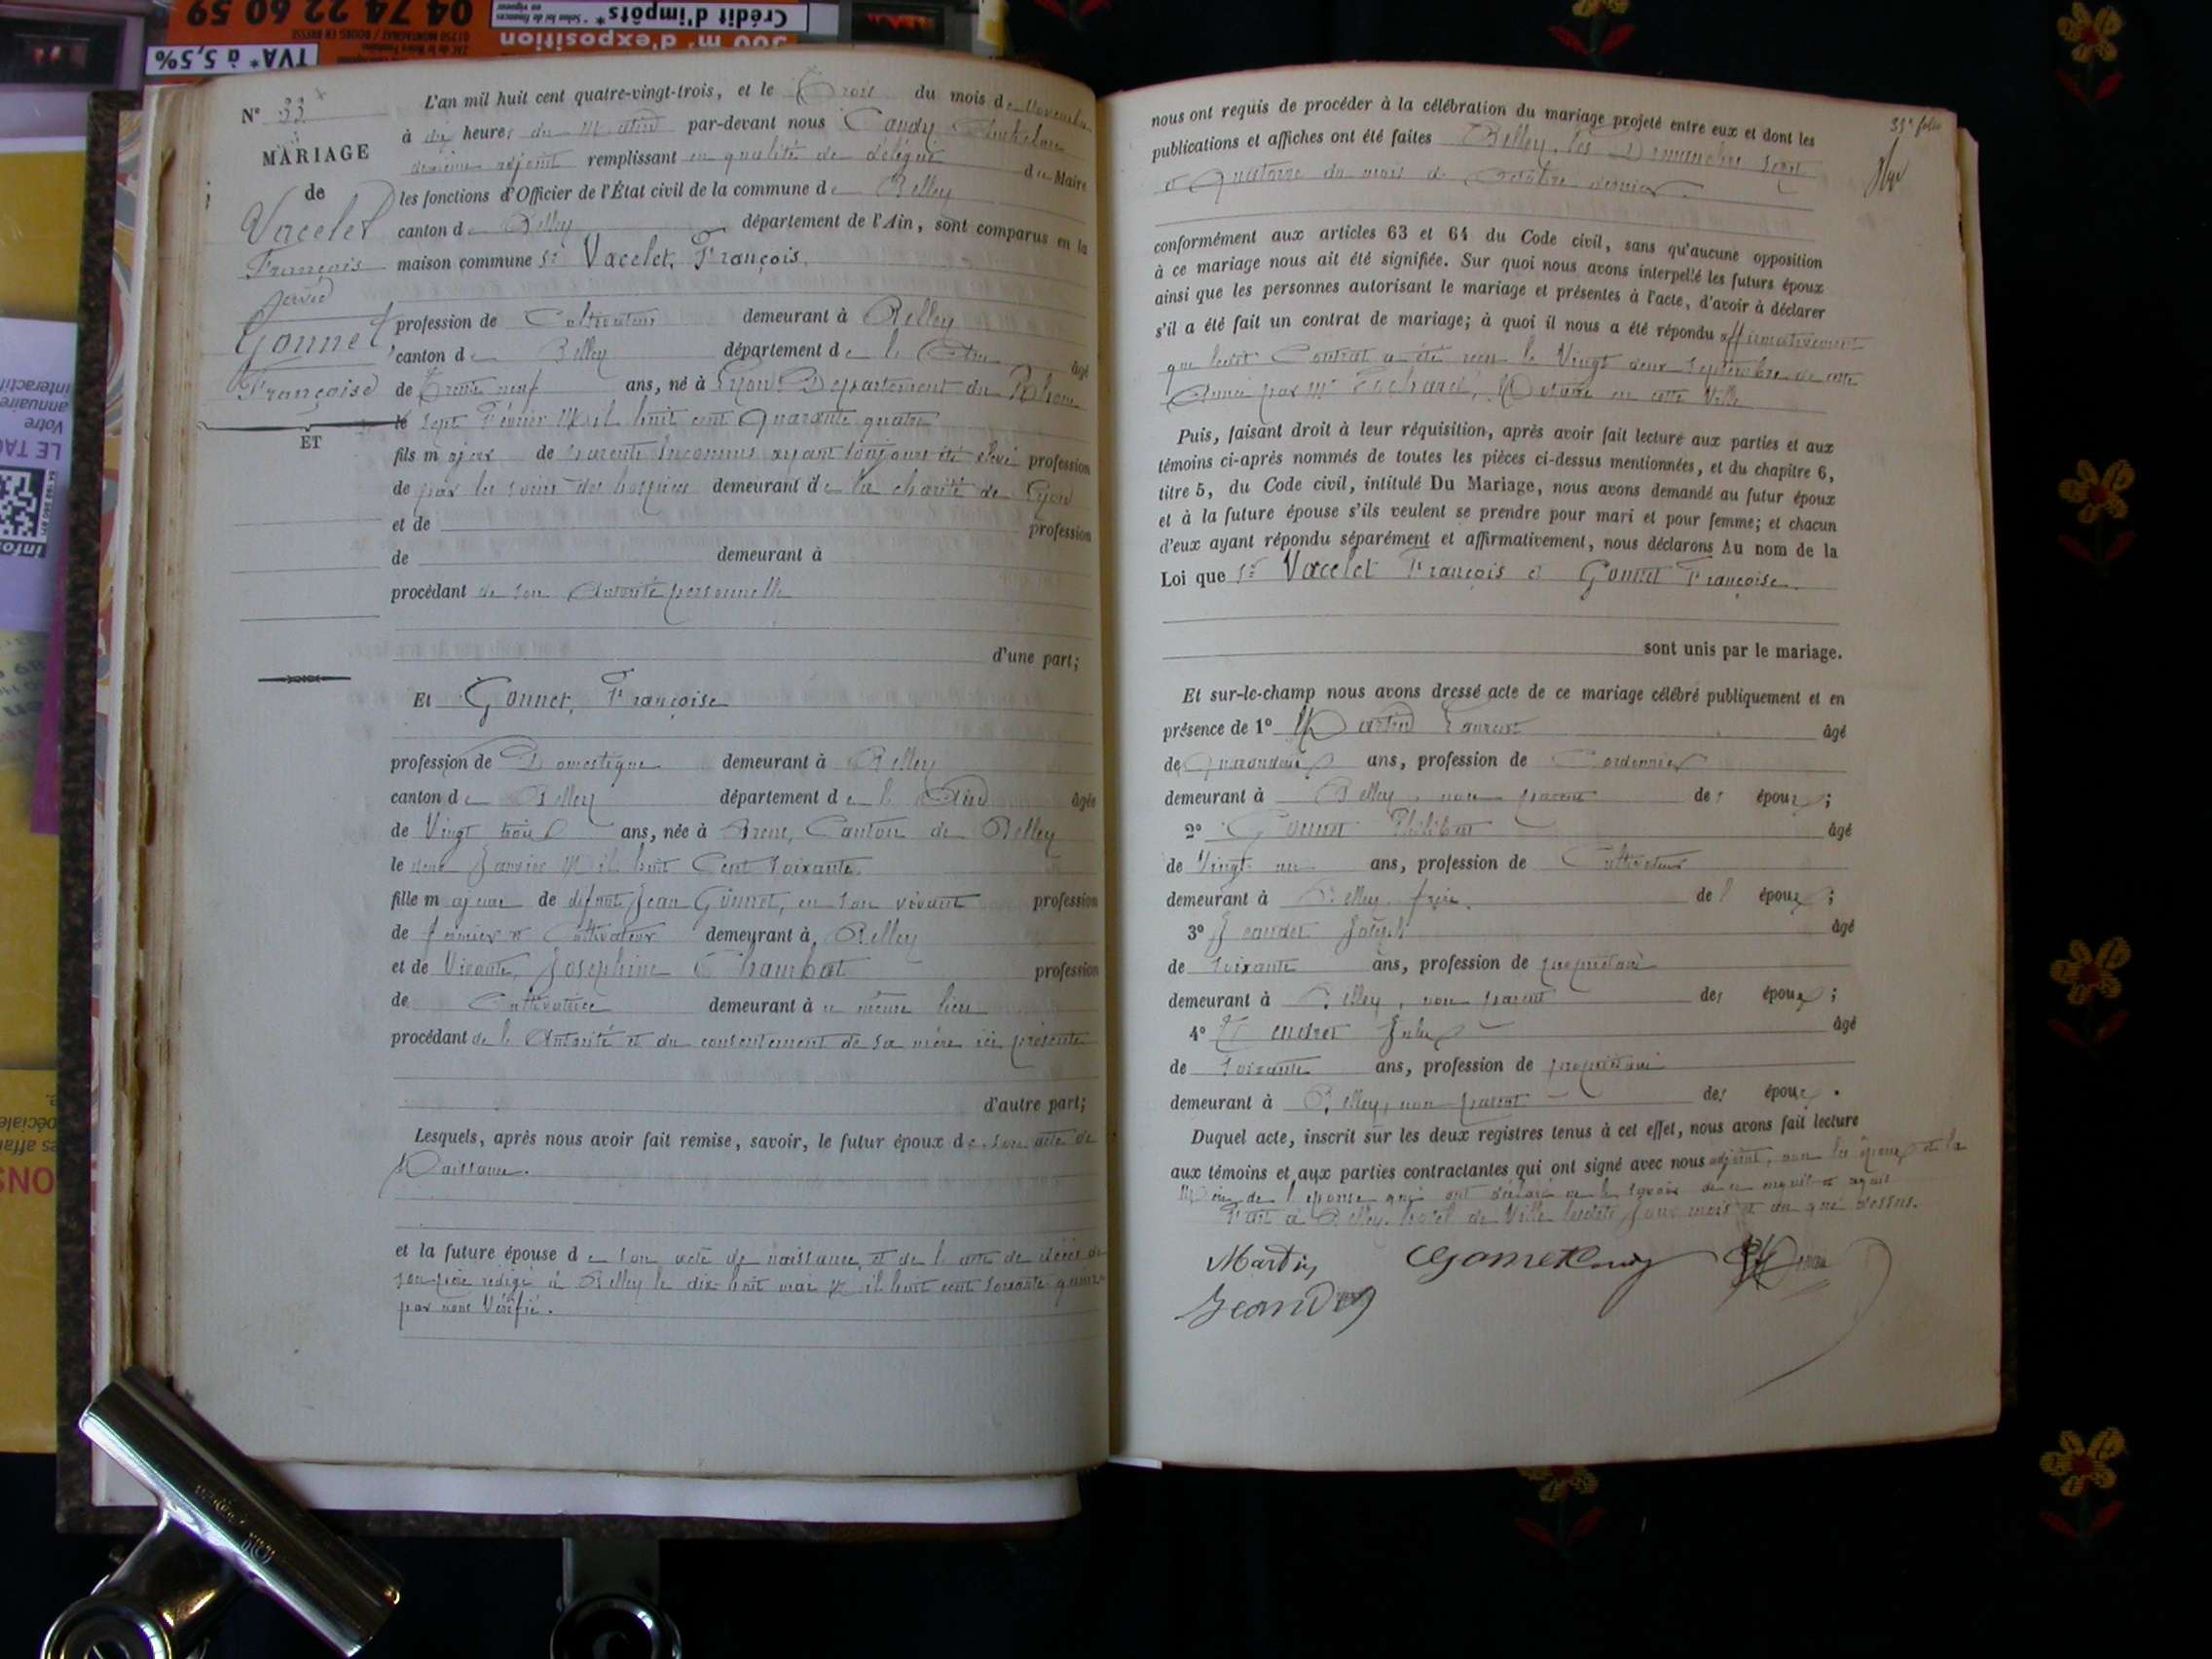 04 74 22 60 59
ZAC de la Neuve Fontaine
01250 MONTAGNAT / BOURG EN BRESSE
TVA* à 5,5%
Crédit d'impôts*
300 m² d'exposition
N° 33
MARIAGE
de
Vacelet
François
avec
Gonnet
Françoise
ET
L'an mil huit cent quatre-vingt-trois, et le Trois du mois de Novembre
à dix heures du Matin par-devant nous Candy Anthelme
deuxième adjoint remplissant en qualité de délégué du Maire
les fonctions d'Officier de l'État civil de la commune de Belley
canton de Belley département de l'Ain, sont comparus en la
maison commune Sr Vacelet, François
profession de Cultivateur demeurant à Belley
canton de Belley département de l'Ain âgé
de Trente neuf ans, né à Lyon Département du Rhône
le Sept Février Mil huit cent Quarante quatre
fils majeur de parents Inconnus ayant toujours été élevé profession
de par les soins des hospices demeurant de la charité de Lyon
et de profession
de demeurant à
procédant de son Autorité personnelle
d'une part;
Et Gonnet, Françoise
profession de Domestique demeurant à Belley
canton de Belley département de l'Ain âgée
de Vingt trois ans, née à Brens, Canton de Belley
le deux Janvier Mil huit Cent Soixante
fille majeure de défunt Jean Gonnet, en son vivant profession
de fermier et Cultivateur demeurant à Belley
et de Vivante, Josephine Chambat profession
de Cultivatrice demeurant à u même lieu
procédant de l'Autorité et du consentement de sa mère ici présente
d'autre part;
Lesquels, après nous avoir fait remise, savoir, le futur époux de son acte de
Naissance.
et la future épouse de son acte de naissance, et de l'acte de décès de
son père rédigé à Belley le dix huit mai Mil huit cent soixante quinze
par nous Vérifié.
33e folio
nous ont requis de procéder à la célébration du mariage projeté entre eux et dont les
publications et affiches ont été faites Belley, les Dimanches Sept
et Quatorze du mois de Octobre dernier
conformément aux articles 63 et 64 du Code civil, sans qu'aucune opposition
à ce mariage nous ait été signifiée. Sur quoi nous avons interpellé les futurs époux
ainsi que les personnes autorisant le mariage et présentes à l'acte, d'avoir à déclarer
s'il a été fait un contrat de mariage; à quoi il nous a été répondu affirmativement
que ledit Contrat a été reçu le Vingt deux Septembre de cette
Année par Me Notaire en cette Ville
Puis, faisant droit à leur réquisition, après avoir fait lecture aux parties et aux
témoins ci-après nommés de toutes les pièces ci-dessus mentionnées, et du chapitre 6,
titre 5, du Code civil, intitulé Du Mariage, nous avons demandé au futur époux
et à la future épouse s'ils veulent se prendre pour mari et pour femme; et chacun
d'eux ayant répondu séparément et affirmativement, nous déclarons Au nom de la
Loi que Sr Vacelet François et Gonnet Françoise
sont unis par le mariage.
Et sur-le-champ nous avons dressé acte de ce mariage célébré publiquement et en
présence de 1° Martin Laurent âgé
de ans, profession de Cordonnier
demeurant à Belley, non parent des époux;
2° Gonnet Philibert âgé
de Vingt un ans, profession de Cultivateur
demeurant à Belley, frère de l'épouse;
3° Jeandet Joseph âgé
de Soixante ans, profession de propriétaire
demeurant à Belley, non parent des époux;
4° âgé
de Soixante ans, profession de propriétaire
demeurant à Belley, non parent des époux.
Duquel acte, inscrit sur les deux registres tenus à cet effet, nous avons fait lecture
aux témoins et aux parties contractantes qui ont signé avec nous adjoint, non les époux et la
Mère de l'épouse qui ont déclaré ne le savoir de ce enquis et requis
Fait à Belley, hotel de Ville lesdits Jour mois et an que dessus.
Martin
Jeandet